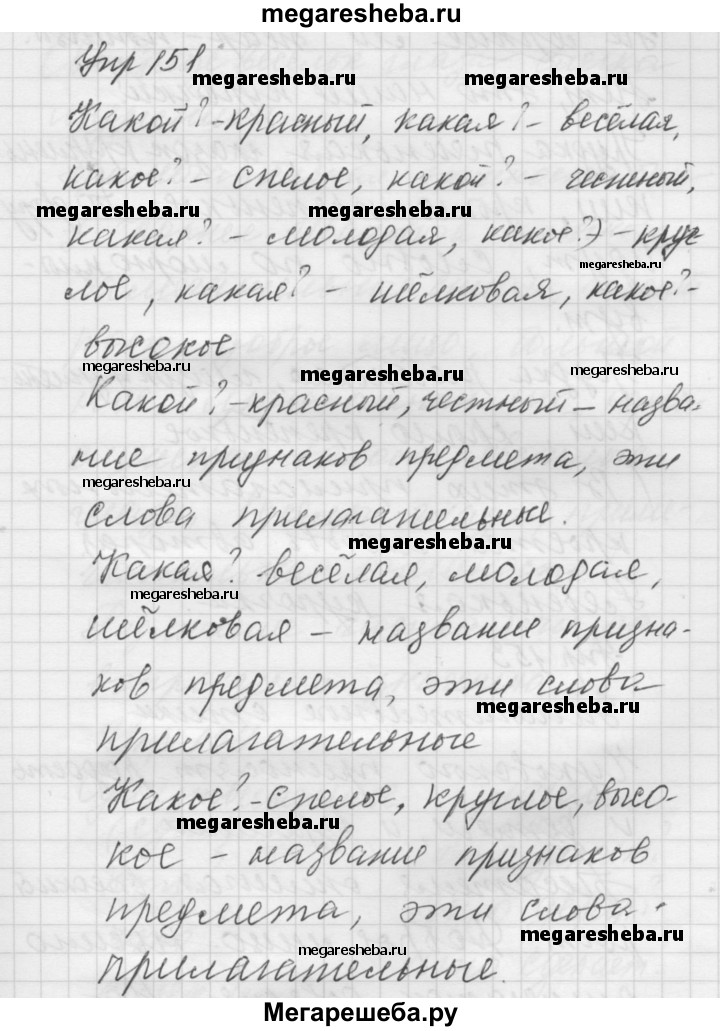 megaresheba.ru
Упр 151
megaresheba.ru megaresheba.ru
Какой? - красный, какая? - весёлая,
какое? - спелое, какой? - честный,
megaresheba.ru megaresheba.ru
какая? - молодая, какое?) - круг
megaresheba.ru
лое, какая? - шёлковая, какое? -
высокое
megaresheba.ru megaresheba.ru megaresheba.ru
Какой? - красный, честный - назва-
ние признаков предмета, эти
megaresheba.ru
слова прилагательные.
megaresheba.ru
Какая? весёлая, молодая,
megaresheba.ru
шёлковая - название призна-
ков предмета, эти слова
megaresheba.ru
прилагательные
Какое? - спелое, круглое, высо-
megaresheba.ru
кое - название признаков
предмета, эти слова
megaresheba.ru
megaresheba.ru
прилагательные.
Мегарешеба.ру